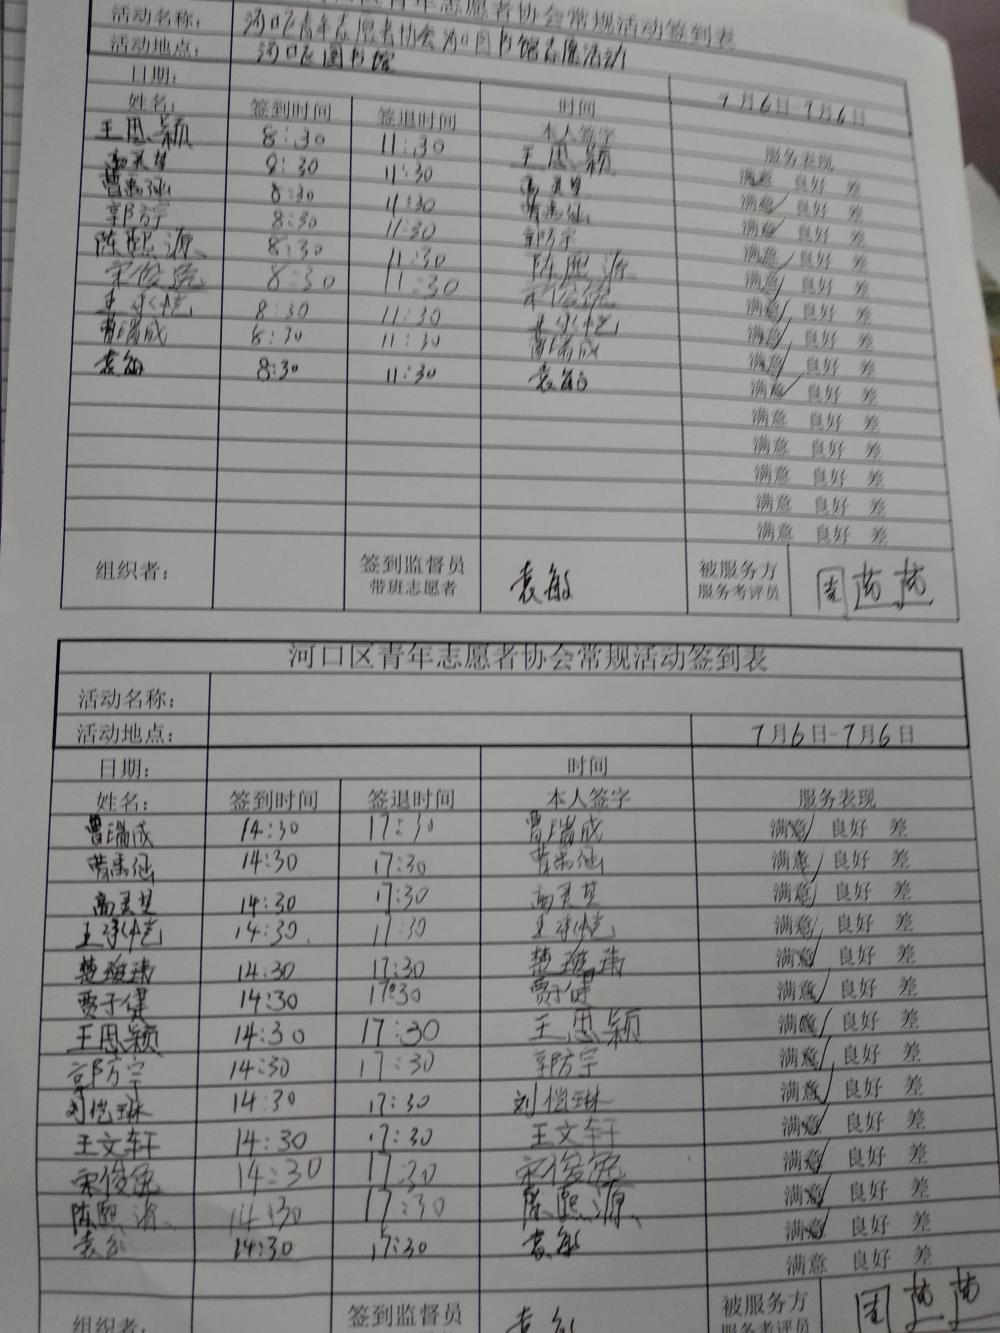 河口区青年志愿者协会常规活动签到表
活动名称: 河口区青年志愿者协会河口图书馆志愿活动
活动地点: 河口区图书馆
日期: 时间 7月6日-7月6日
姓名: 签到时间 签退时间 本人签字 服务表现
王思颖 8:30 11:30 王思颖 满意 良好 差
高灵芝 8:30 11:30 高灵芝 满意 良好 差
曹禹汕 8:30 11:30 曹禹汕 满意 良好 差
郭方宇 8:30 11:30 郭方宇 满意 良好 差
陈熙源 8:30 11:30 陈熙源 满意 良好 差
宋俊 8:30 11:30 宋俊 满意 良好 差
王承恺 8:30 11:30 王承恺 满意 良好 差
曹瑞成 8:30 11:30 曹瑞成 满意 良好 差
袁敏 8:30 11:30 袁敏 满意 良好 差
满意 良好 差
满意 良好 差
满意 良好 差
满意 良好 差
满意 良好 差
组织者: 签到监督员 袁敏 被服务方 周茜茜
带班志愿者 服务考评员
河口区青年志愿者协会常规活动签到表
活动名称:
活动地点: 7月6日-7月6日
日期: 时间
姓名: 签到时间 签退时间 本人签字 服务表现
曹瑞成 14:30 17:30 曹瑞成 满意 良好 差
14:30 17:30 满意 良好 差
高灵芝 14:30 17:30 高灵芝 满意 良好 差
王承恺 14:30 17:30 王承恺 满意 良好 差
楚璇玮 14:30 17:30 楚璇玮 满意 良好 差
贾子健 14:30 17:30 贾子健 满意 良好 差
王思颖 14:30 17:30 王思颖 满意 良好 差
郭方宇 14:30 17:30 郭方宇 满意 良好 差
刘恺琳 14:30 17:30 刘恺琳 满意 良好 差
王文轩 14:30 17:30 王文轩 满意 良好 差
宋俊 14:30 17:30 宋俊 满意 良好 差
陈熙源 14:30 17:30 陈熙源 满意 良好 差
袁敏 14:30 17:30 袁敏 满意 良好 差
满意 良好 差
组织者: 签到监督员 袁敏 被服务方 周茜茜
服务考评员